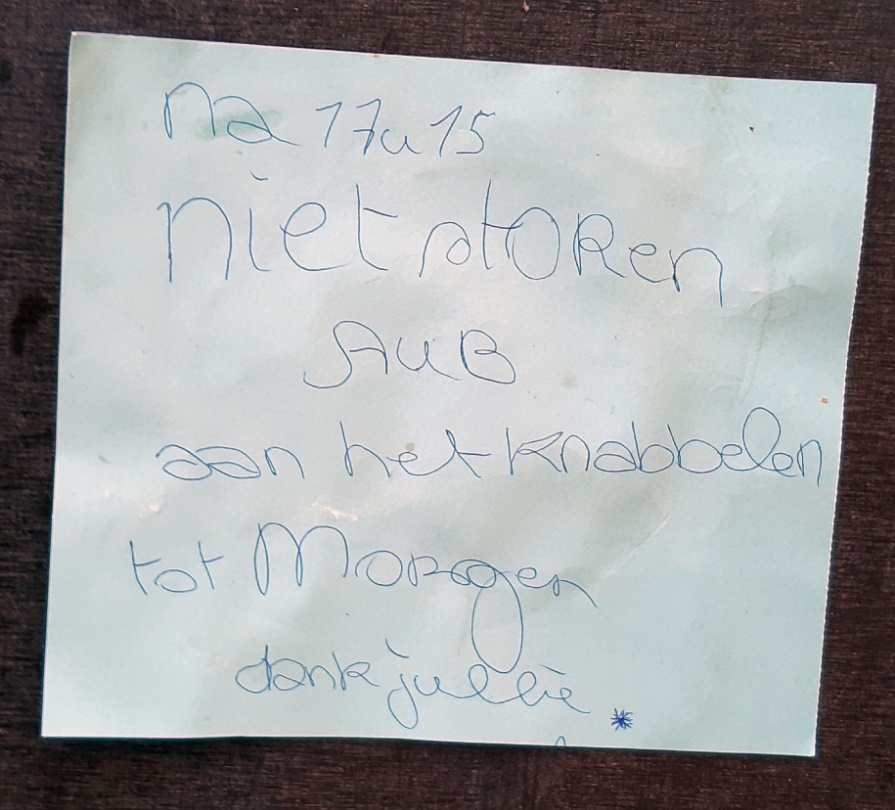 na 17u15
niet stORen
AUB
aan het knabbelen
tot MoRgen
dank jullie *